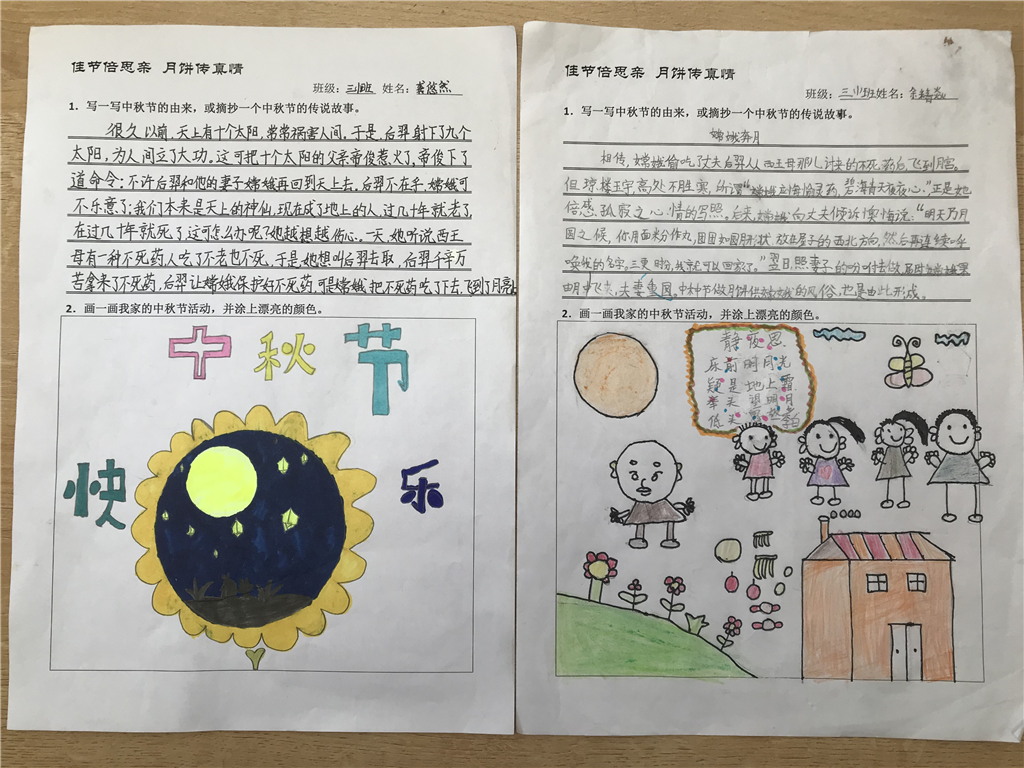 佳节倍思亲 月饼传真情
班级：三小班 姓名：龚悠然
1. 写一写中秋节的由来，或摘抄一个中秋节的传说故事。
很久以前，天上有十个太阳，常常祸害人间，于是，后羿射下了九个
太阳，为人间立了大功。这可把十个太阳的父亲帝俊惹火了，帝俊下了
道命令：不许后羿和他的妻子嫦娥再回到天上去，后羿不在乎，嫦娥可
不乐意了：我们本来是天上的神仙，现在成了地上的人，过几十年就老了，
在过几十年就死了这可怎么办呢？她越想越伤心。一天，她听说西王
母有一种不死药人吃了不老也不死、于是，她想叫后羿去取，后羿千辛万
苦拿来了不死药，后羿让嫦娥保护好不死药，可是嫦娥把不死药吃了下去，飞到了月亮上
2. 画一画我家的中秋节活动，并涂上漂亮的颜色。
中秋节
快乐
佳节倍思亲 月饼传真情
班级：三小班 姓名：
1. 写一写中秋节的由来，或摘抄一个中秋节的传说故事。
嫦娥奔月
相传，嫦娥偷吃了丈夫后羿从西王母那儿讨来的不死药后，飞到月宫。
但琼楼玉宇，高处不胜寒，所谓“嫦娥应悔偷灵药，碧海青天夜夜心。”正是她
倍感孤寂之心情的写照。后来，嫦娥向丈夫倾诉懊悔说：“明天乃月
圆之候，你用面粉作丸，团团如圆月形状，放在屋子的西北方向，然后再连续呼
唤我的名字。三更时分，我就可以回家了。”翌日，照妻子的吩咐去做，届时嫦娥果
由月中飞来，夫妻重圆。中秋节做月饼供嫦娥的风俗，也是由此形成。
2. 画一画我家的中秋节活动，并涂上漂亮的颜色。
静夜思
床前明月光
疑是地上霜
举头望明月
低头思